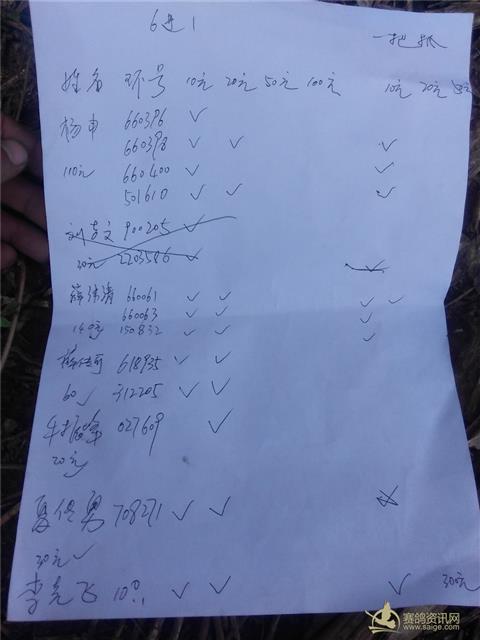 6进1 一把抓
姓名 环号 10元 20元 50元 100元 10元 20元 50元
杨申 660396 ✓
660398 ✓ ✓ ✓
110元 660400 ✓ ✓
501610 ✓ ✓ ✓
900205 ✓
30元 2203586 ✓ ✓
薛伟清 660061 ✓ ✓ ✓ ✓
660063 ✓ ✓ ✓
140元 150832 ✓ ✓ ✓
618935 ✓ ✓
60 312205 ✓ ✓
027609 ✓
20元
夏传男 708271 ✓ ✓
30元 ✓
李克飞 ✓ ✓ ✓ 30元
赛鸽资讯网
www.saige.com